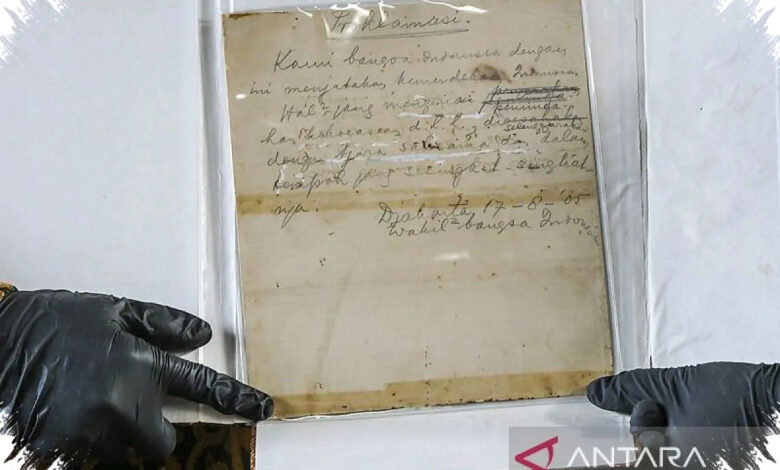 Proklamasi.
Kami bangsa Indonesia dengan
ini menjatakan kemerdekaan Indonesia.
Hal² jang mengenai
peminda-
han kekoeasaan d.l.l., dioesahakan
diselenggarakan
dengan tjara saksama dan dalam
tempoh jang sesingkat-singkat-
nja.
Djakarta, 17-8-'05
Wakil² bangsa Indonesia
ANTARA